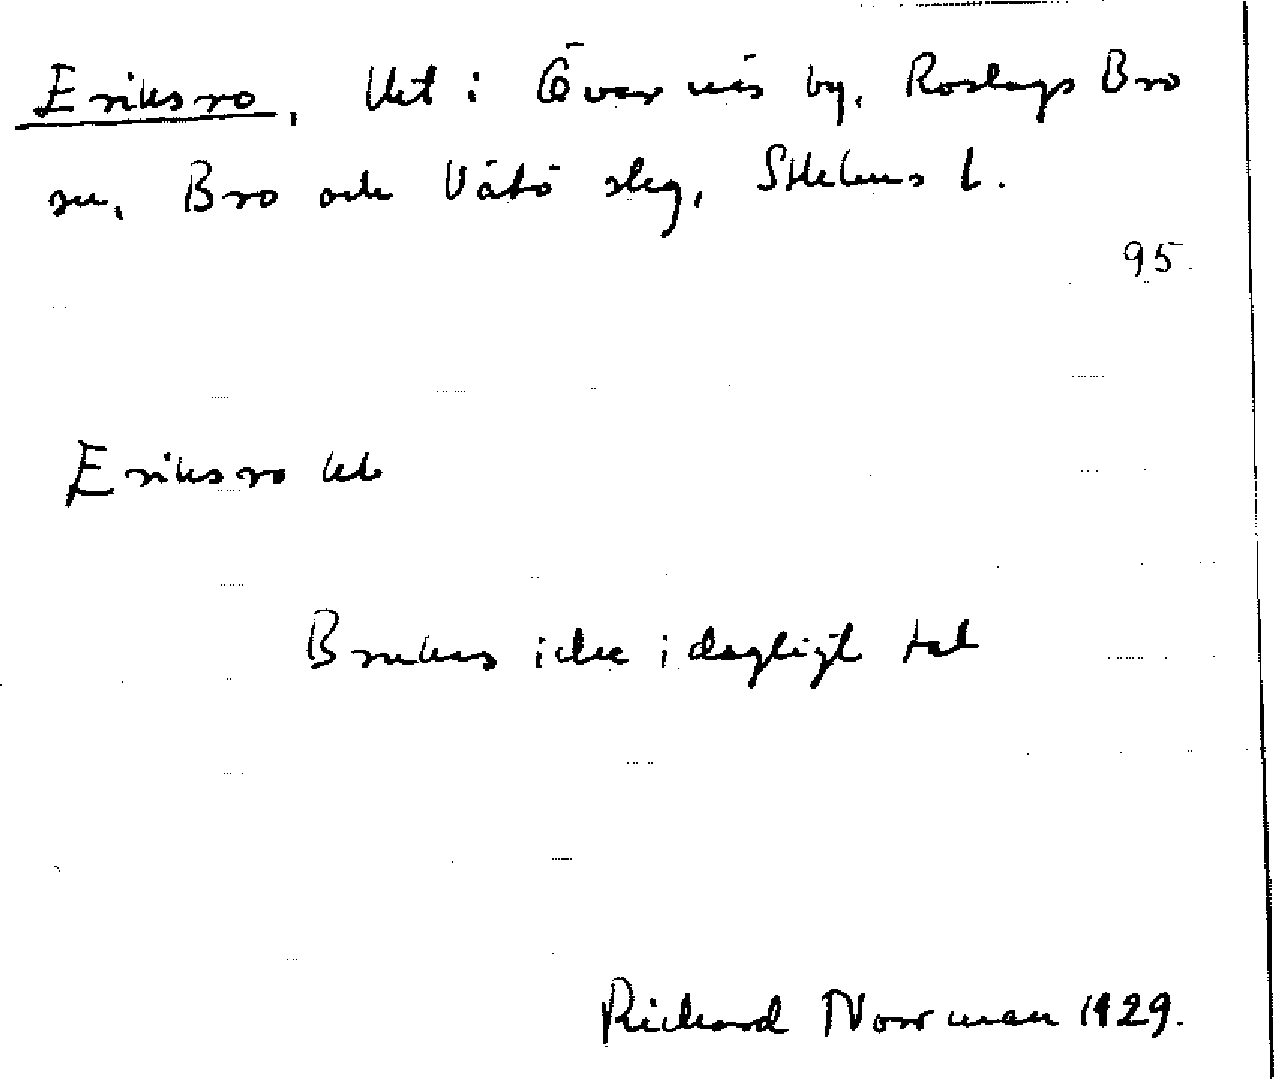 Eriksro, lht i Övernäs by, Roslags Bro
sn, Bro och Vätö slg, Sthlms l.
95
Eriksro lht
Brukas icke i dagligt tal
Richard Norrman 1929.